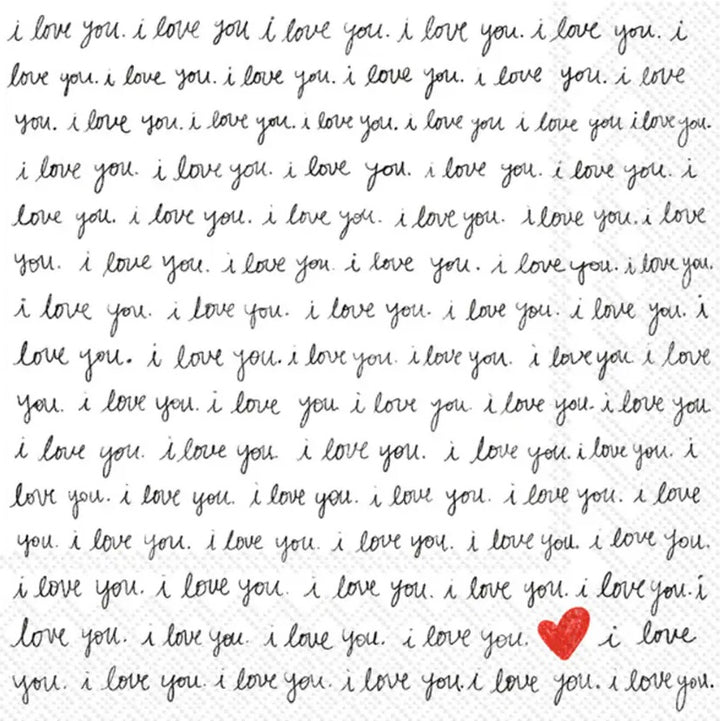 i love you. i love you i love you. i love you. i love you. i
love you. i love you. i love you. i love you. i love you. i love
you. i love you. i love you. i love you. i love you i love you i love you.
i love you. i love you. i love you. i love you. i love you. i
love you. i love you. i love you. i love you. i love you. i love
you. i love you. i love you i love you. i love you. i love you.
i love you. i love you. i love you. i love you. i love you. i
love you. i love you. i love you. i love you. i love you i love
you. i love you. i love you i love you. i love you. i love you
i love you. i love you. i love you. i love you. i love you. i
love you. i love you. i love you. i love you. i love you. i love
you. i love you. i love you. i love you. i love you. i love you.
i love you. i love you. i love you. i love you. i love you. i
love you. i love you. i love you. i love you. i love
you. i love you. i love you. i love you. i love you. i love you.